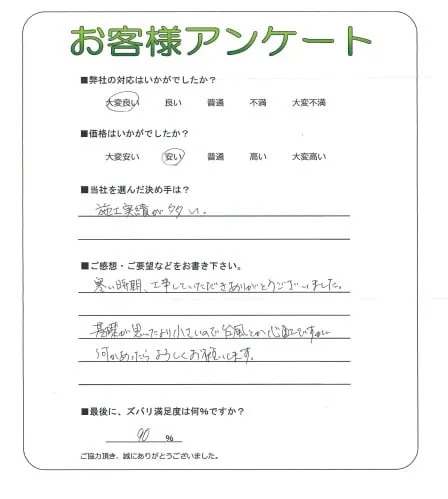 お客様アンケート
■弊社の対応はいかがでしたか?
大変良い 良い 普通 不満 大変不満
■価格はいかがでしたか?
大変安い 安い 普通 高い 大変高い
■当社を選んだ決め手は?
施工実績が多い。
■ご感想・ご要望などをお書き下さい。
寒い時期、工事していただきありがとうございました。
基礎が思ったより小さいので台風とか心配ですが
何かあったらよろしくお願いします。
■最後に、ズバリ満足度は何%ですか?
90 %
ご協力頂き、誠にありがとうございました。